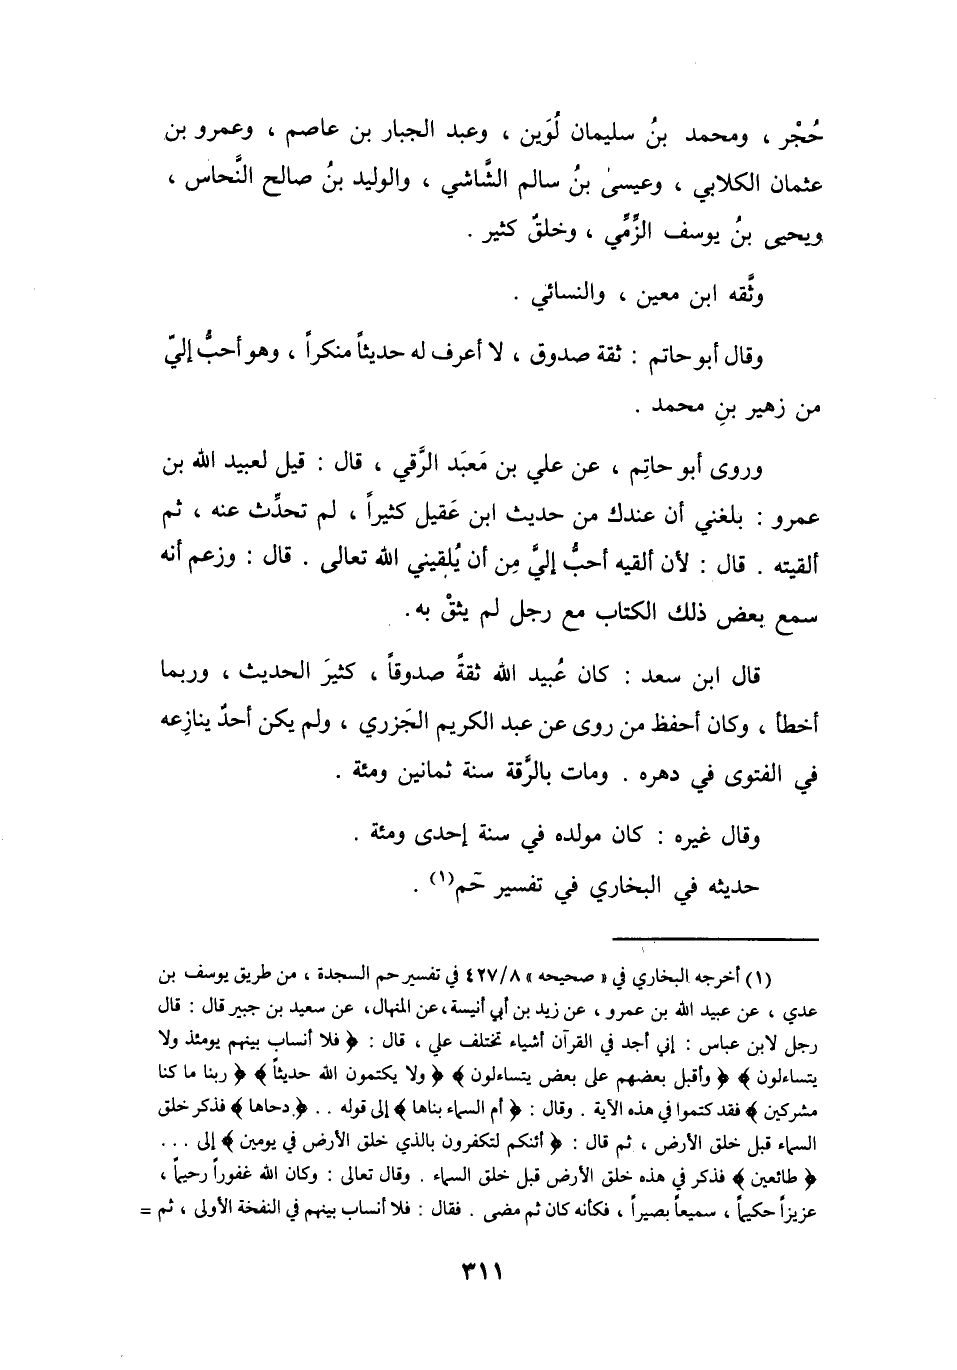 حُجْر ، ومحمد بنُ سليمان لُوَين ، وعبد الجبار بن عاصم ، وعمرو بن
عثمان الكلابي ، وعيسىٰ بنُ سالم الشَّاشي ، والوليد بنُ صالح النَّحاس ،
ويحيى بنُ يوسف الزِّمِّي ، وخلقٌ كثير .
وثَّقه ابن معين ، والنسائي .
وقال أبو حاتم : ثقة صدوق ، لا أعرف له حديثاً منكراً ، وهو أحبُّ إليّ
من زهير بنِ محمد .
وروى أبو حاتِم ، عن علي بن مَعبَد الرَّقي ، قال : قيل لعبيد الله بن
عمرو : بلغني أن عندك من حديث ابن عَقيل كثيراً ، لم تحدِّث عنه ، ثم
ألقيته . قال : لأن ألقيه أحبُّ إليَّ مِن أن يُلقِيني الله تعالى . قال : وزعم أنه
سمع بعض ذلك الكتاب مع رجل لم يثقْ به .
قال ابن سعد : كان عُبيد الله ثقةً صدوقاً ، كثيرَ الحديث ، وربما
أخطأ ، وكان أحفظ من روى عن عبد الكريم الجَزري ، ولم يكن أحدٌ ينازِعه
في الفتوى في دهره . ومات بالرَّقة سنة ثمانين ومئة .
وقال غيره : كان مولده في سنة إحدى ومئة .
حديثه في البخاري في تفسير حَم(١) .
(١) أخرجه البخاري في « صحيحه » ٤٢٧/٨ في تفسير حم السجدة ، من طريق يوسف بن
عدي ، عن عبيد الله بن عمرو ، عن زيد بن أبي أنيسة، عن المنهال، عن سعيد بن جبير قال : قال
رجل لابن عباس : إني أجد في القرآن أشياء تختلف علي ، قال : ﴿ فلا أنساب بينهم يومئذ ولا
يتساءلون ﴾ ﴿ وأقبل بعضهم على بعض يتساءلون ﴾ ﴿ ولا يكتمون الله حديثاً ﴾ ﴿ ربنا ما كنا
مشركين ﴾ فقد كتموا في هذه الآية . وقال : ﴿ أم السماء بناها ﴾ إلى قوله . . ﴿ دحاها ﴾ فذكر خلق
السماء قبل خلق الأرض ، ثم قال : ﴿ أئنكم لتكفرون بالذي خلق الأرض في يومين ﴾ إلى . . .
﴿ طائعين ﴾ فذكر في هذه خلق الأرض قبل خلق السماء . وقال تعالى : وكان الله غفوراً رحيماً ،
عزيزاً حكيماً ، سميعاً بصيراً ، فكأنه كان ثم مضى . فقال : فلا أنساب بينهم في النفخة الأولى ، ثم =
٣١١